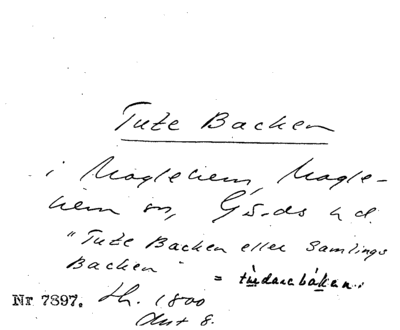 Tute Backen
i Maglehem, Magle-
hem sn, Gärds hd.
"Tute Backen eller Samlings
Backen" = tùdaebákan.
Nr 7897. Sk. 1800
Akt 8.